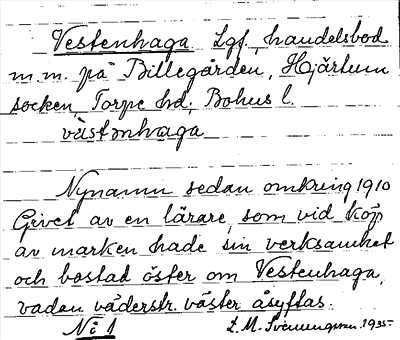 Vestenhaga Lgf., handelsbod
m.m. på Billegården, Hjärtum
socken Torpe hd, Bohus l.
västənhaga
Nynamn sedan omkring 1910
Givet av en lärare, som vid köp
av marken hade sin verksamhet
och bostad öster om Vestenhaga,
vadan väderstr. väster åsyftas.
No 1 E. M. Svenungsson. 1935-